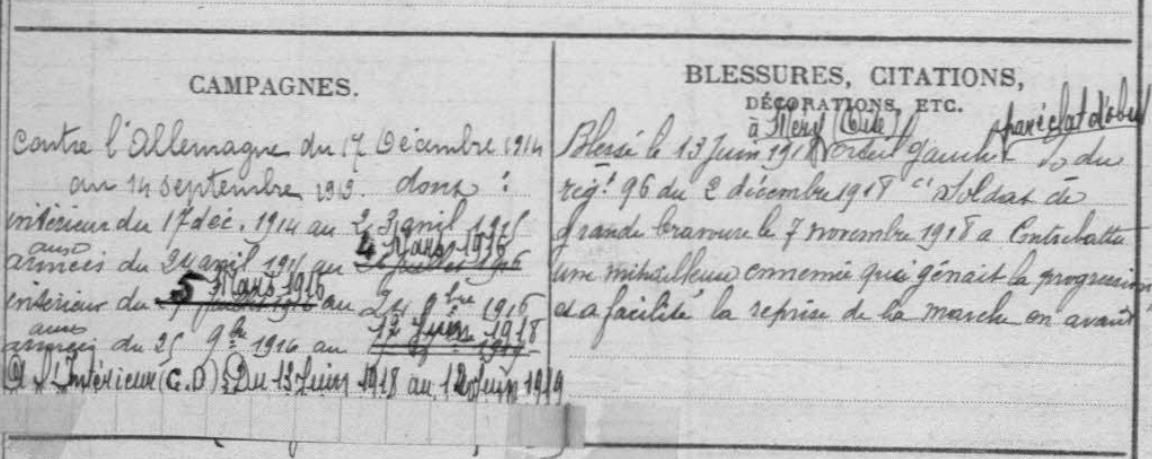 CAMPAGNES.
contre l'Allemagne du 17 Décembre 1914
au 14 septembre 1919. dont :
intérieur du 17 déc. 1914 au 23 avril 1915
aux
armées du 24 avril 1915 au 4 Mars 1916
intérieur du 5 Mars 1916 au 24 9bre 1916
aux
armées du 25 9bre 1916 au 12 Juin 1918
A l'Intérieur (C.D) Du 13 Juin 1918 au 12 Juin 1919
BLESSURES, CITATIONS,
DÉCORATIONS, ETC.
à Mery (Oise) par éclat d'obus
Blessé le 13 Juin 1918 orteil gauche du
régt 96 du 2 décembre 1918 "Soldat de
grande bravoure le 7 novembre 1918 a contrebattu
une mitrailleuse ennemie qui gênait la progression
et a facilité la reprise de la marche en avant"